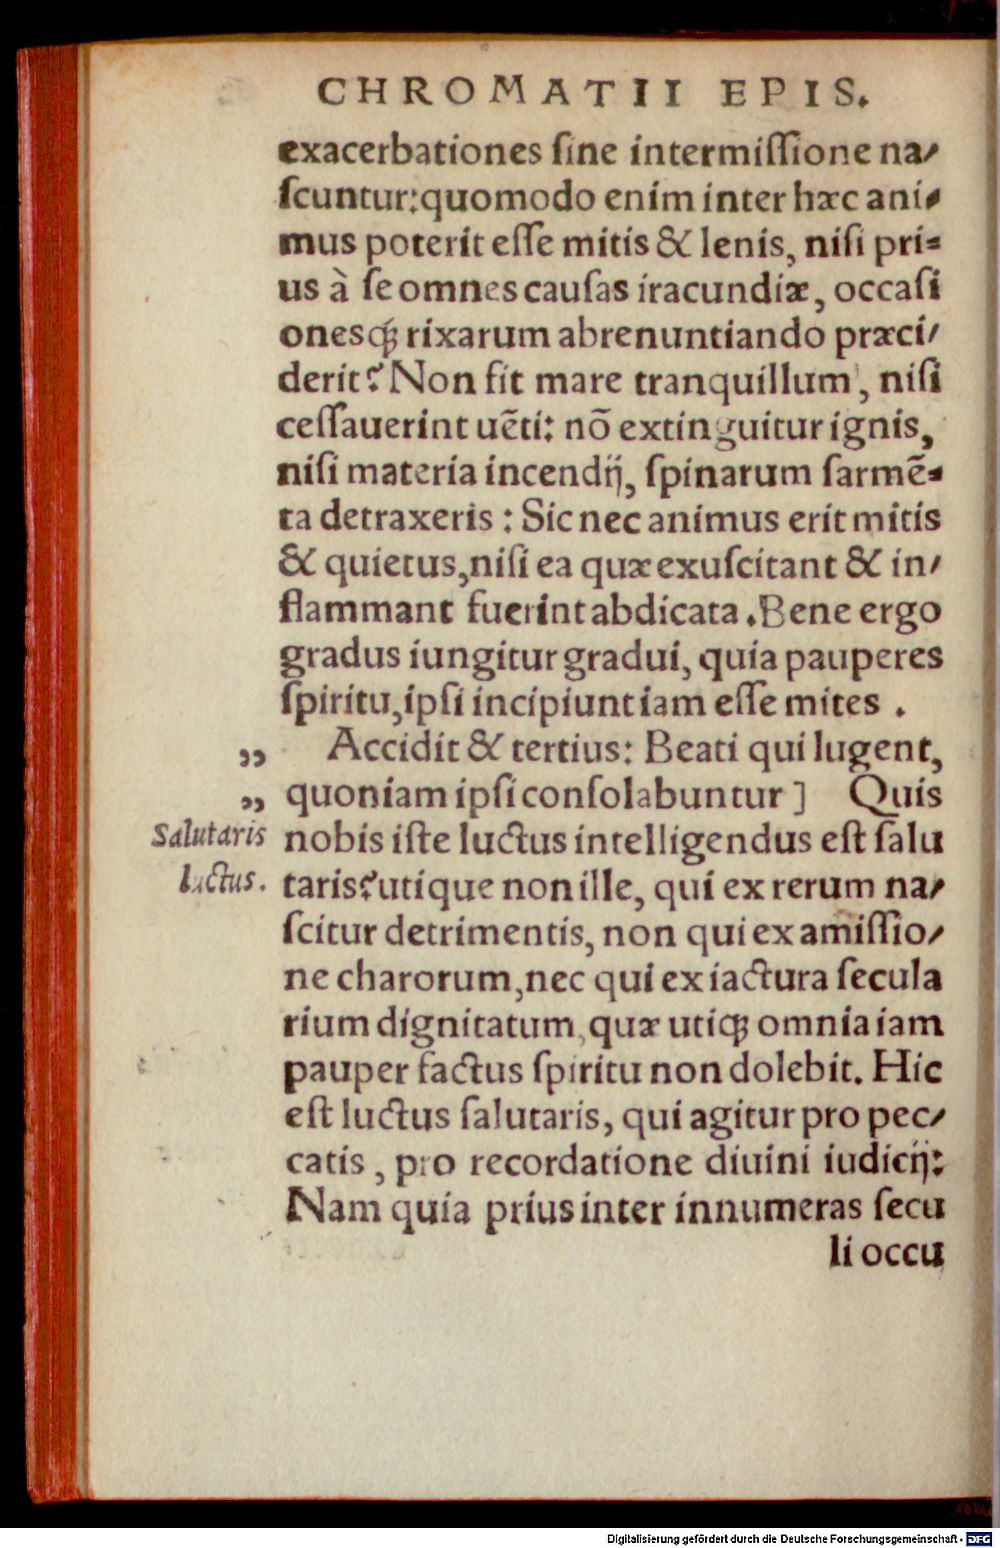 CHROMATII EPIS.
exacerbationes ſine intermiſſione na⸗
ſcuntur: quomodo enim inter hæc ani⸗
mus poterit eſſe mitis & lenis, niſi pri⸗
us à ſe omnes cauſas iracundiæ, occaſi
onesq́ꝫ rixarum abrenuntiando præci⸗
derit? Non fit mare tranquillum, niſi
ceſſauerint uẽti: nõ extinguitur ignis,
niſi materia incendĳ, ſpinarum ſarmẽ⸗
ta detraxeris: Sic nec animus erit mitis
& quietus, niſi ea quæ exuſcitant & in⸗
flammant fuerint abdicata. Bene ergo
gradus iungitur gradui, quia pauperes
ſpiritu, ipſi incipiunt iam eſſe mites.
„ Accidit & tertius: Beati qui lugent,
„ quoniam ipſi conſolabuntur] Quis
Salutaris nobis iſte luctus intelligendus eſt ſalu
luctus. taris? utique non ille, qui ex rerum na⸗
ſcitur detrimentis, non qui ex amiſſio⸗
ne charorum, nec qui ex iactura ſecula
rium dignitatum, quæ utiqꝫ omnia iam
pauper factus ſpiritu non dolebit. Hic
eſt luctus ſalutaris, qui agitur pro pec⸗
catis, pro recordatione diuini iudicĳ:
Nam quia prius inter innumeras ſecu
li occu
Digitalisierung gefördert durch die Deutsche Forschungsgemeinschaft - DFG